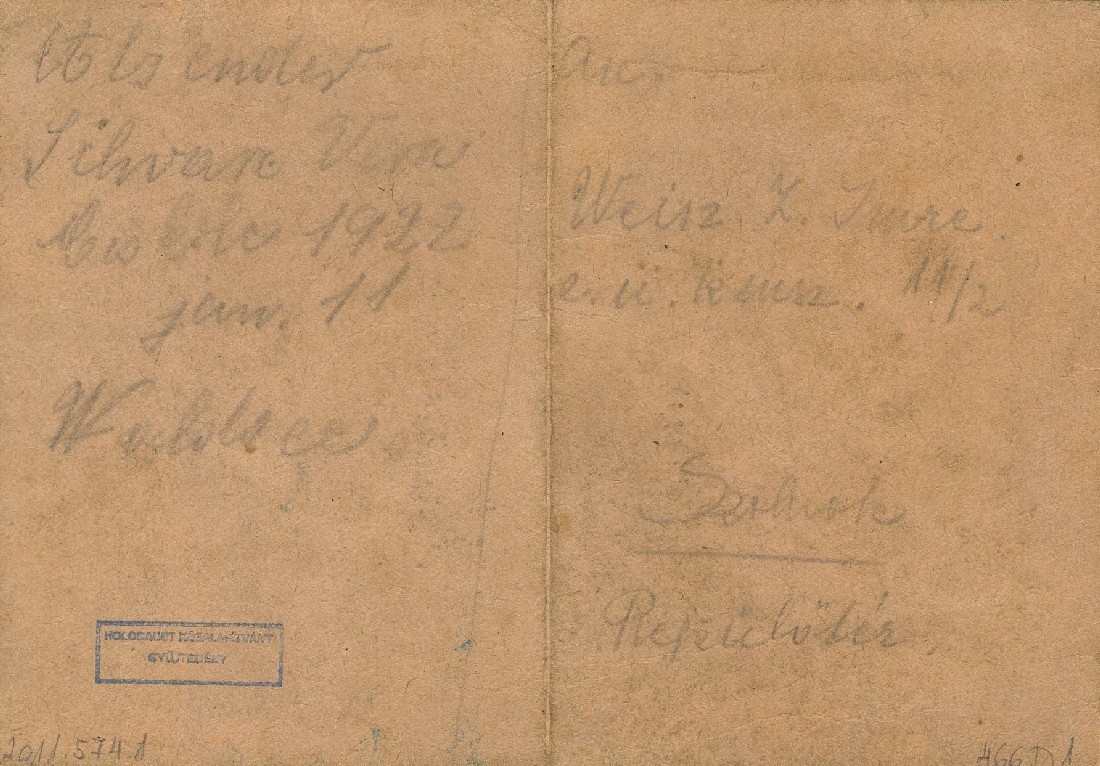 Absender
Schvarc Vera
1922
jan. 11
Waldsee
An
Weisz Z. Imre
e. ü. kmsz. 11/2
Szolnok
Repülőtér.
HOLOCAUST KÖZALAPÍTVÁNY
GYŰJTEMÉNY
2011.574.1